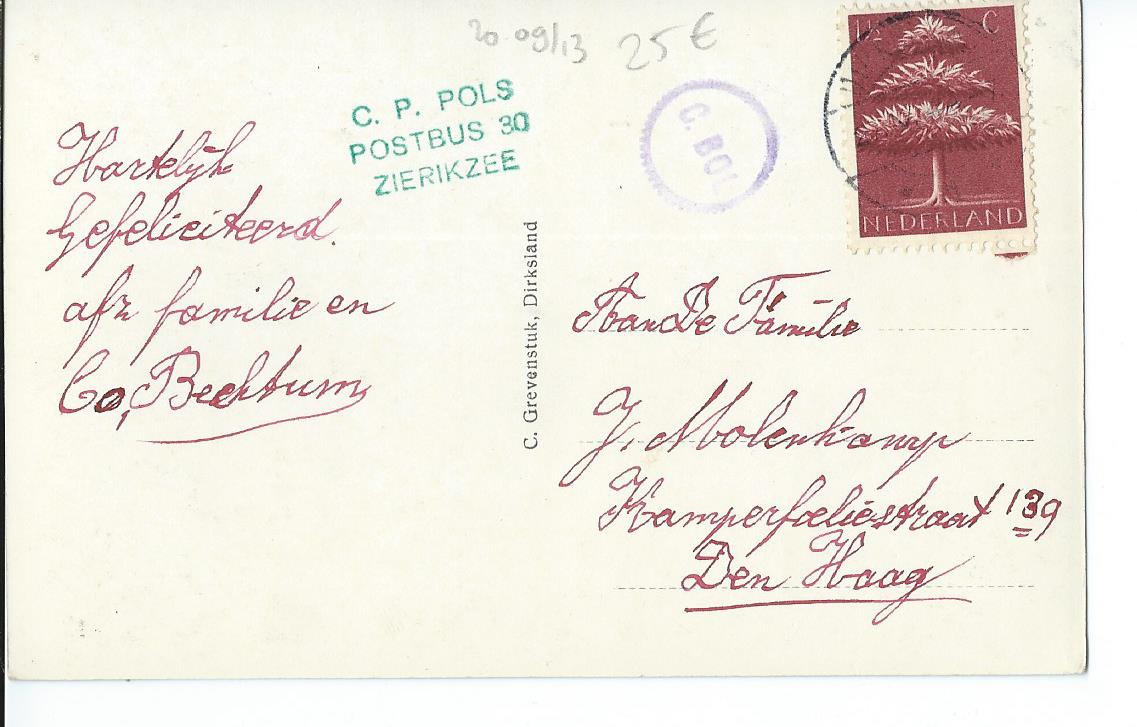 20 09/13 25 €
C. P. POLS
POSTBUS 30
ZIERIKZEE
C. BOL
1½ C
NEDERLAND
Hartelijk
Gefeliciteerd.
afz familie en
Co, Bechtum
C. Grevenstuk, Dirksland
Aan De Familie
J. Molenkamp
Kamperfoeliestraat 139
Den Haag